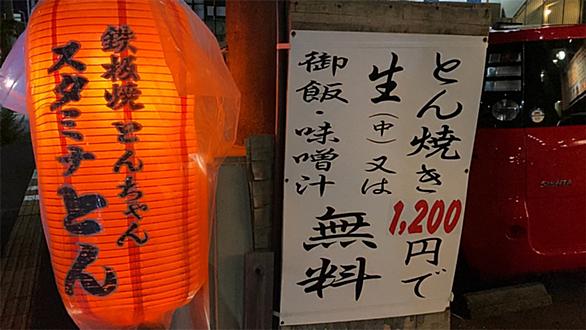 鉄板焼とんちゃん
スタミナとん
とん焼き1,200円で
生(中)又は
御飯・味噌汁
無料